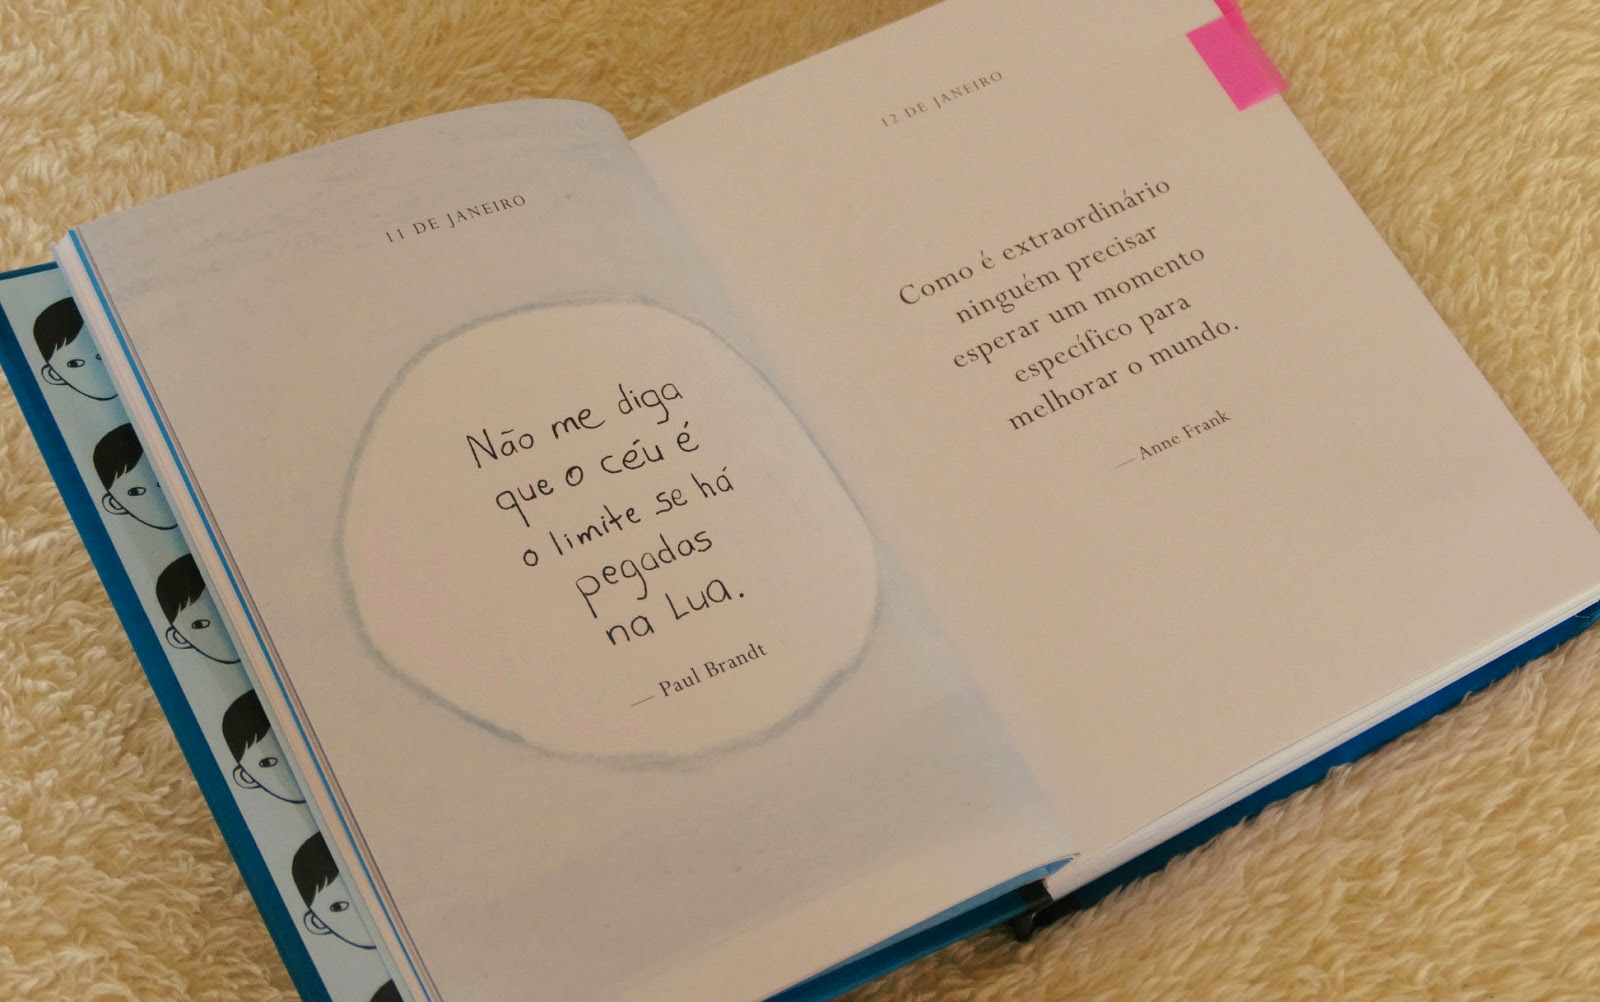 11 DE JANEIRO
Não me diga
que o céu é
o limite se há
pegadas
na Lua.
— Paul Brandt
12 DE JANEIRO
Como é extraordinário
ninguém precisar
esperar um momento
específico para
melhorar o mundo.
— Anne Frank